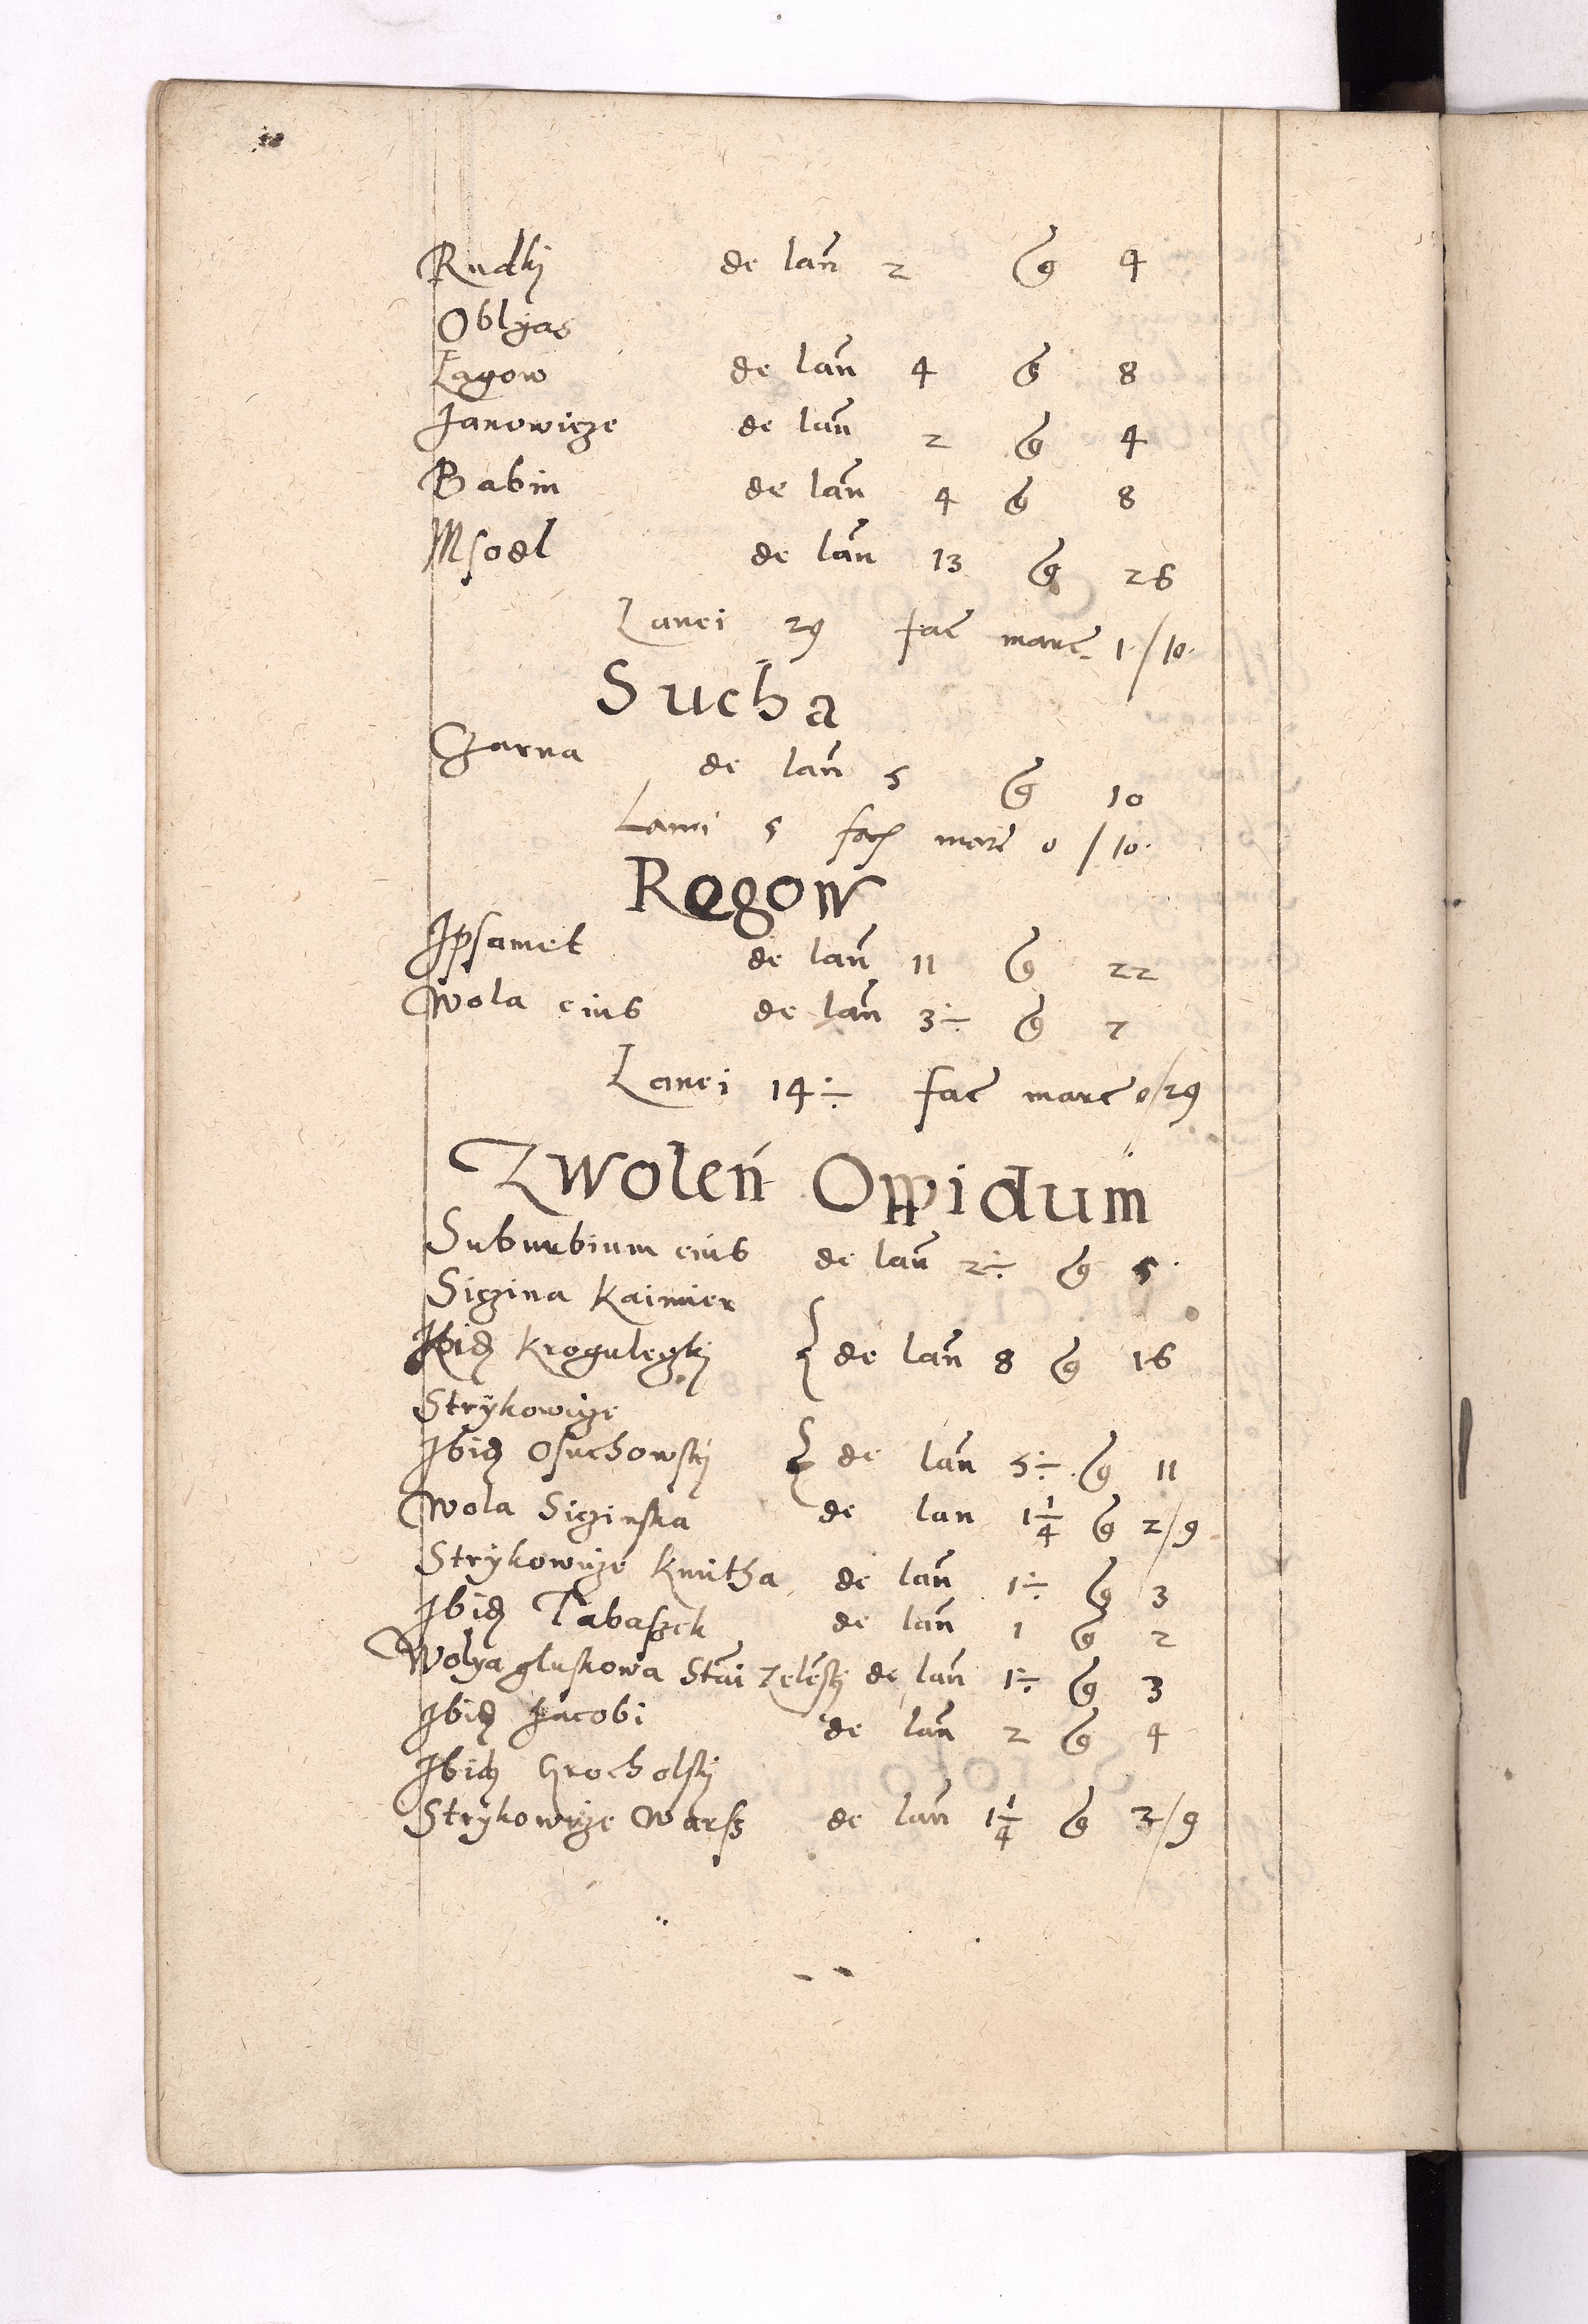 Rudky de lan̄ 2 g̃ 4
Oblyas
Lagow de lan̄ 4 g̃ 8
Janowicze de lan̄ 2 g̃ 4
Babin de lan̄ 4 g̃ 8
Msodl de lan̄ 13 g̃ 26
Lanei 29 fac̄ marc̄ 1/10.
Sucha
Czarna de lan̄ 5 g̃ 10
Lanei 5 fac̄ marc̄ 0/10.
Regow
Ipsamet de lan̄ 11 g̃ 22
Wola eius de lan̄ 3÷ g̃ 7
Lanei 14÷ fac̄ marc̄ 0/29
Zwoleń Oppidum
Suburbium eius de lan̄ 2÷ g̃ 5
Siczina Kaimier
Ibid Kroguleczky } de lan̄ 8 g̃ 16
Strÿkowicze
Ibid Osuchowsky } de lan̄ 5÷ g̃ 11
Wola Siczinska de lan 1 1/4 g̃ 2/9
Strÿkowicze Kmitha de lan̄ 1÷ g̃ 3
Ibid Tabaszek de lan̄ 1 g̃ 2
Wolya gluskowa Stāi de lan̄ 1÷ g̃ 3
Ibid Jacobi de lan̄ 2 g̃ 4
Ibid Grocholsky
Strÿkowicze Warss de lan̄ 1 1/4 g̃ 2/9